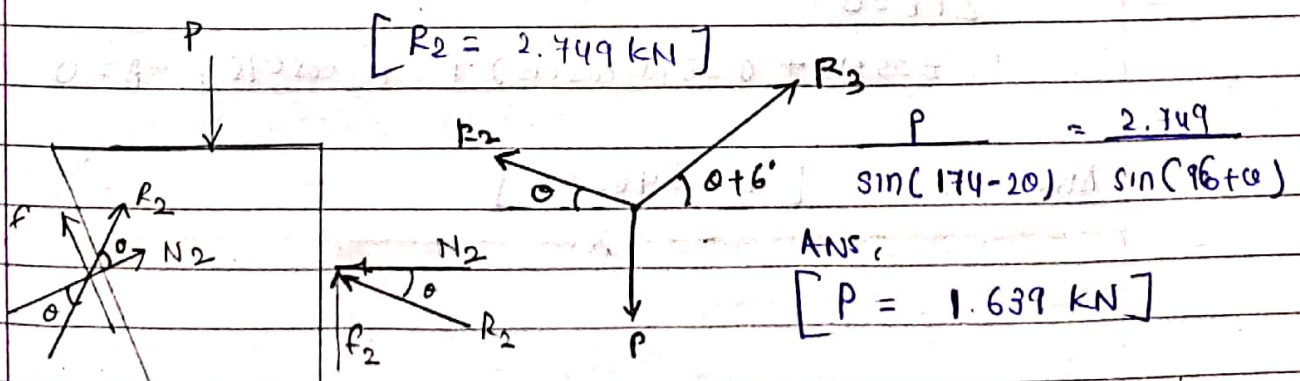 P
[R2 = 2.749 kN]
R3
R2
θ
θ+6°
P = 2.749
sin(174-2θ) sin(96+θ)
f
R2
θ
N2
θ
N2
θ
R2
f2
P
ANS,
[P = 1.639 kN]